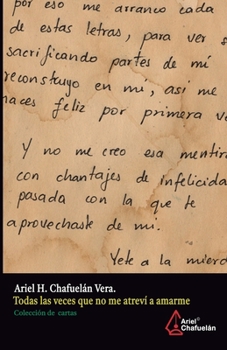 por eso me arranco cada
de estas letras, para ver s
sacrificando partes de mí
reconstruyo en mi, asi me
haces feliz por primera v
Y no me creo esa mentir
con chantajes de infelicida
pasada con la que te
aprovechaste de mi.
Vete a la mierd
Ariel H. Chafuelán Vera.
Todas las veces que no me atreví a amarme
Colección de cartas
Ariel®
Chafuelán